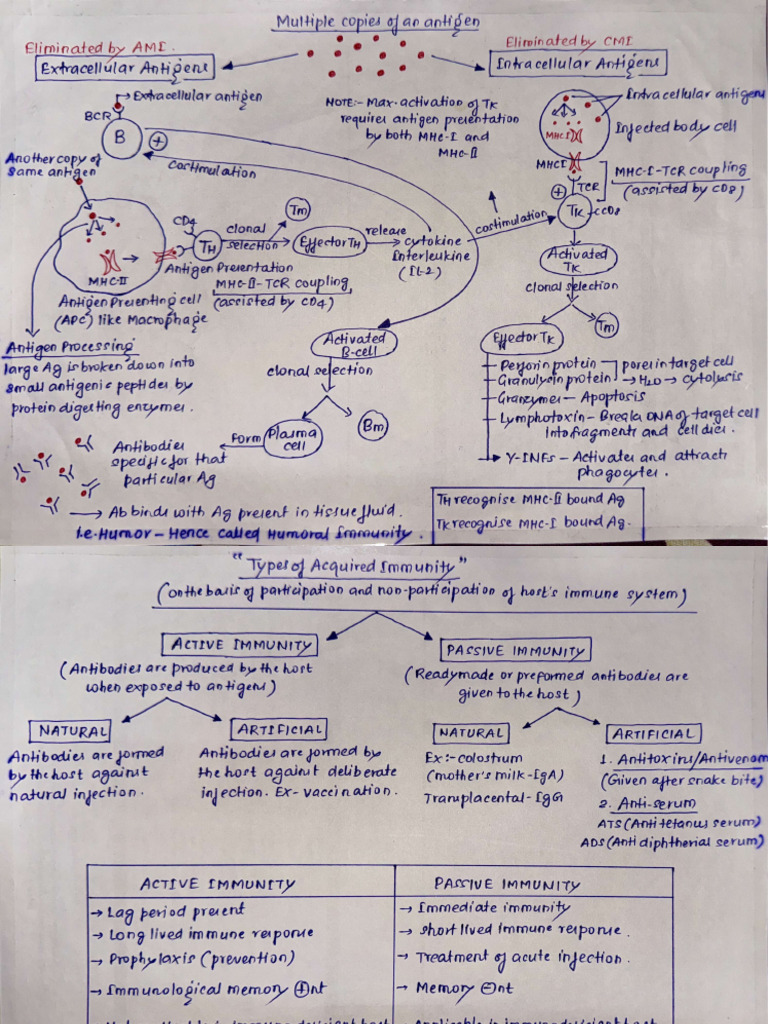 Multiple copies of an antigen
Eliminated by AMI.
Extracellular Antigens
Eliminated by CMI
Intracellular Antigens
Extracellular antigen
BCR
B
+
Costimulation
Another copy of
same antigen
NOTE:- Max. activation of TK
requires antigen presentation
by both MHC-I and
MHC-II
Intracellular antigens
Infected body cell
MHC I
MHC I
MHC-I-TCR coupling
(assisted by CD8)
+
TCR
TK
CD8
CD4
TH
clonal
selection
Tm
Effector TH
release
cytokine
Interleukine
(IL-2)
costimulation
MHC-II
Antigen Presentation
MHC-II-TCR coupling
(assisted by CD4)
Antigen Presenting cell
(APC) like Macrophage
Activated
TK
clonal selection
Effector TK
Tm
Antigen Processing
large Ag is broken down into
small antigenic peptides by
protein digesting enzymes.
Activated
B-cell
clonal selection
Plasma
cell
Bm
Form
Antibodies
specific for that
particular Ag
Perforin protein
Granulysin protein
pores in target cell
→ H2O → cytolysis
Granzymes - Apoptosis
Lymphotoxin - Breaks DNA of target cell
into fragments and cell dies.
γ-INFs - Activates and attracts
phagocytes.
→ Ab binds with Ag present in tissue fluid.
i.e. Humor - Hence called Humoral Immunity.
TH recognise MHC-II bound Ag
TK recognise MHC-I bound Ag.
"Types of Acquired Immunity"
(On the basis of participation and non-participation of host's immune system)
ACTIVE IMMUNITY
(Antibodies are produced by the host
when exposed to antigens)
PASSIVE IMMUNITY
(Readymade or preformed antibodies are
given to the host)
NATURAL
Antibodies are formed
by the host against
natural infection.
ARTIFICIAL
Antibodies are formed by
the host against deliberate
infection. Ex- vaccination.
NATURAL
Ex:- colostrum
(mother's milk-IgA)
Transplacental-IgG
ARTIFICIAL
1. Antitoxins/Antivenom
(Given after snake bite)
2. Anti-serum
ATS (Antitetanus serum)
ADS (Anti diphtherial serum)
ACTIVE IMMUNITY
→ Lag period present
→ Long lived immune response
→ Prophylaxis (prevention)
→ Immunological memory ⊕nt
PASSIVE IMMUNITY
→ Immediate immunity
→ short lived immune response.
→ Treatment of acute infection.
→ Memory ⊖nt